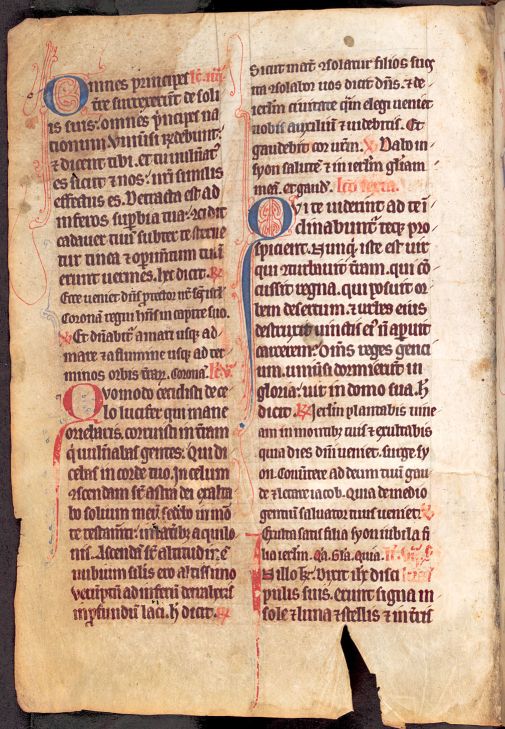 Omnes principes lc̄. iiij.
tr̄e surrexerūt de soli
is suis: omnes p̄ncipes na
tionum. Vniu̇si r̄ndebunt:
⁊ dicent tibi. et tu uuln̄at᷒
es sicut ⁊ nos: nr̄i similis
effectus es. Detracta est ad
inferos supbia tua: ⁊cidit
cadauer tuū subter te sterne
tur tinea ⁊ opimētum tuū
erunt uermes. hec dicit. ℟
Ecce ueniet dn̄s ptector nr̄ sc̄s isrl̄
coronā regni hn̄s in capite suo.
℣ Et dn̄abit᷑ a mari usq; ad
mare ⁊ a flumine usq; ad ter
minos orbis t̄raȝ. Coronā. lc̄. v.
Quomodo cecidisti de ce
lo lucifer qui mane
oriebaris. corruisti in t̄ram
q̇ uuln̄abas gentes. Qui di
cebas in corde tuo. In celum
⁊scendam sr̄ astra dei exalta
bo solium meū. sedebo in mō
te testam̄ti: in lat̄ib; aquilo
nis. Ascendā sr̄ altitudinē
nubium similis ero altissimo
Verūptn̄ ad infernū detraheris
in pfundū laci. h̄ dicit. ℟
Sicut mat᷑ ⁊solatur filios suos
ita ⁊solabor uos dicit dn̄s. ⁊ de
ierl̄m ciuitate q̄m elegi ueniet
uobis auxiliū ⁊ uidebitis. Et
gaudebit cor ur̄m. ℣ Dabo in
syon salutē ⁊ in ierl̄m gl̄iam
meā. et gaud̄. lc̄o sexta.
Qui te uiderint ad te ī
clinabunt᷑ teq; pro
spicient. Nunq̇d iste est uir
qui ⁊turbauit t̄ram. qui cō
cussit regna. qui posuit or
bem desertum. ⁊ urbes eius
destruxit. uinctis ei᷒ n̄ apuit
carcerem. Om̄s reges genci
um. uniu̇si dormierūt in
gloria: uir in domo sua. h̄
dicit. ℟ Ierl̄m plantabis uine
am in montib; tuis ⁊ exultabis
quia dies dn̄i ueniet. surge sy
on. conu̇tere ad deum tuū gau
de ⁊ letare iacob. Quia de medio
gentiū saluator tuus ueniet. ℣
Exulta satis filia syon iubila fi
lia ierl̄m. Q̄a. Gl̄a. Quia.
In illo t̄r. Dixit ih̄c disci
pulis suis. erunt signa in
sole ⁊ luna ⁊ stellis ⁊ in t̄ris